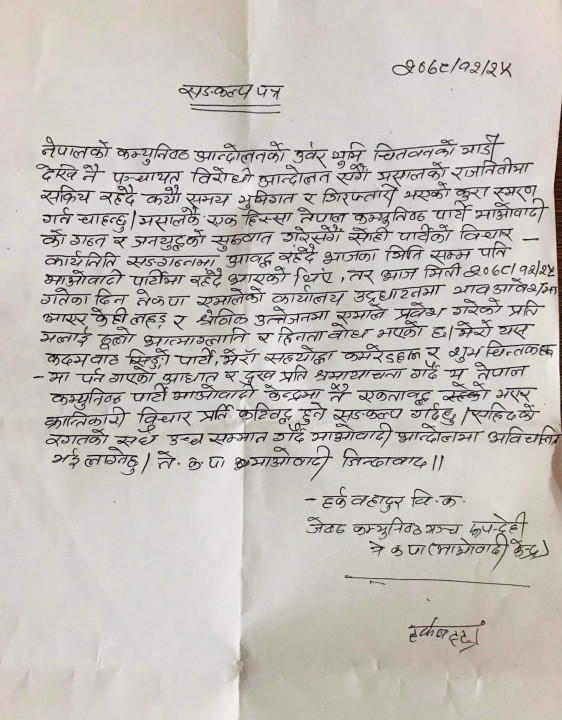 २०७९/१२/२५
सङकल्प पत्र
नेपालको कम्युनिष्ठ आन्दोलनको उर्वर भूमि चितवनको माडी
देखि नै पञ्चायत विरोधी आन्दोलन सँगै मसालको राजनितीमा
सक्रिय रहँदै कयौ समय भुमिगत र गिरफ्तारी भएको कुरा स्मरण
गर्न चाहन्छु। मसालकै एक हिस्सा नेपाल कम्युनिष्ठ पार्टी माओवादी
को गठन र जनयुद्धको सुरुवात गरेसँगै सोही पार्टीको विचार –
कार्यनिति सङगठनमा आवद्ध रहँदै आजका मिति सम्म पनि
माओवादी पार्टीमा रहँदै आएको थिएं, तर आज मिती २०७९/१२/२५
गतेका दिन नेकपा एमालेको कार्यालय उद्घाटनमा भाव आवेशमा
आएर केही लहड र क्षेणिक उत्तेजनमा एमाले प्रवेश गरेको प्रति
मलाई ठूलो आत्माग्लानि र हिनता वोध भएको छ। मेरो यस
कदमवाट सिङ्गो पार्टी, मेरा सहयोद्धा कमरेडहरू र शुभ चिन्तकहरू
– मा पर्न गएको आघात र दुःख प्रति क्षमायाचना गर्दै म नेपाल
कम्युनिष्ठ पार्टी माओवादी केन्द्रमा नै एकतावद्ध रहेको भएर
क्रान्तिकारी विचार प्रति कटिवद्ध हुने सङकल्प गर्दछु। सहिदको
रगतको सधैं उच्च सम्मान गर्दै माओवादी आन्दोलमा अविचलित
भई लाग्नेछु। ने. क. पा माओवादी जिन्दावाद॥
– हर्क वहादुर वि. क.
जेष्ठ कम्युनिष्ठ मञ्च रूपन्देही
ने क पा (माओवादी केन्द्र)